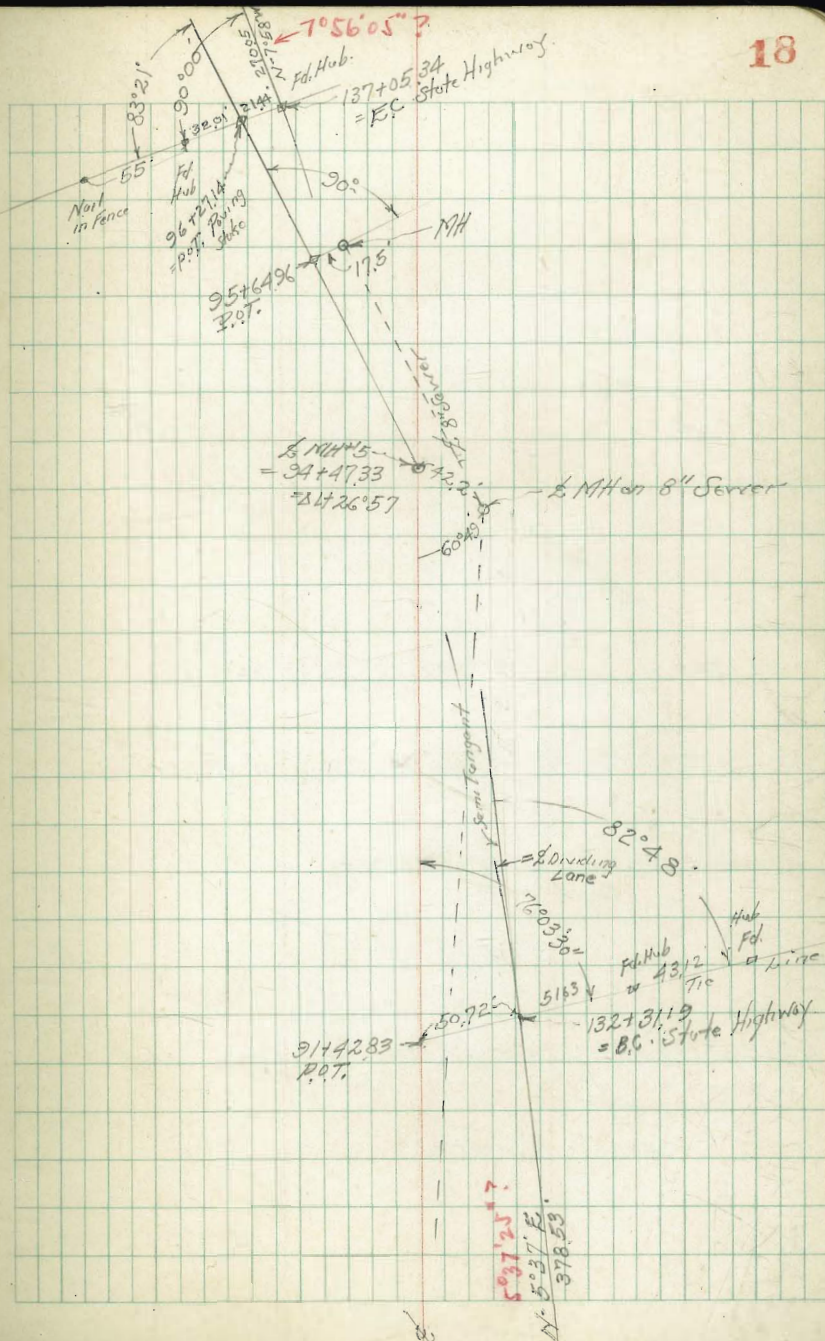 18
7°56'05" ?
270.05
N-7°58'W
Fd. Hub.
137+05.34
= E.C. State Highway.
83°21'
90°00'
32.01'
21.4
55'
Nail
in Fence
Fd.
Hub
96+27.14
=P.O.T. Paving
Stake
90°
MH
17.5'
95+64.96
P.O.T.
8" Sewer
₵ MH #5
= 94+47.33
=Δ Lt 26°57
42.2'
₵ MH on 8" Sewer
60°49'
Semi Tangent
82°48
=₵ Dividing
Lane
76°03'30"
Hub
Fd.
Fd. Hub
43.12
Tie
Line
5163
50.72'
132+31.19
= B.C. State Highway
91+42.83
P.O.T.
5°37'25" ?
N. 5°37' E.
378.53'